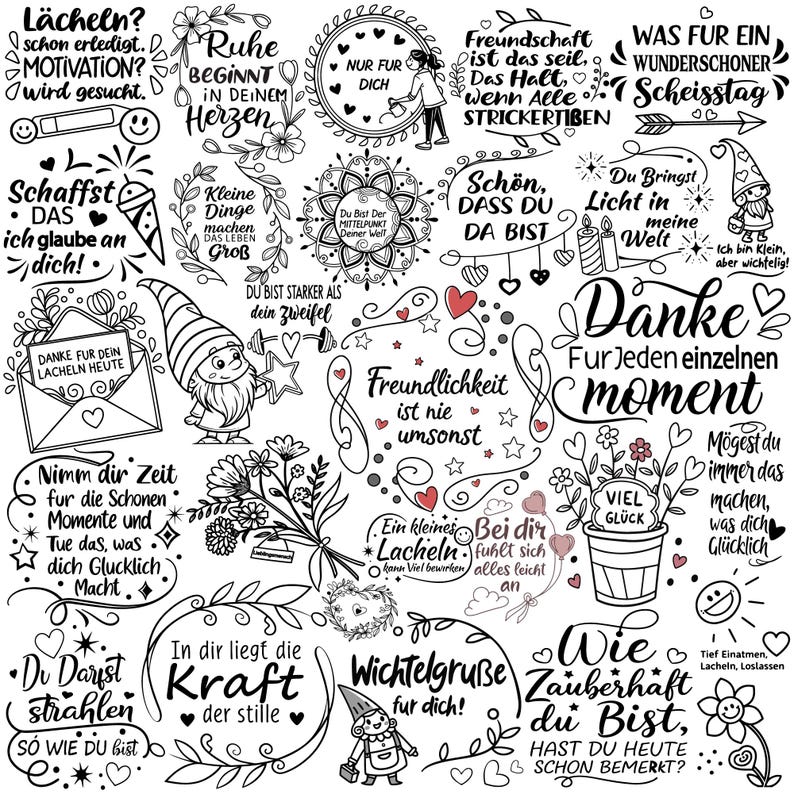 Lächeln?
schon erledigt.
MOTIVATION?
wird gesucht.
Ruhe
BEGINNT
IN DEINEM
Herzen
NUR FUR
DICH
Freundschaft
ist das seil,
Das Halt,
wenn Alle
STRICKERTIßEN
WAS FUR EIN
WUNDERSCHONER
Scheisstag
Schaffst
DAS
ich glaube an
dich!
Kleine
Dinge
machen
DAS LEBEN
Groß
Du Bist Der
MITTELPUNKT
Deiner Welt
Schön,
DASS DU
DA BIST
Du Bringst
Licht in
meine
Welt
Ich bin Klein,
aber wichfelig!
DANKE FUR DEIN
LACHELN HEUTE
DU BIST STARKER ALS
dein zweifel
Freundlichkeit
ist nie
umsonst
Danke
Fur Jeden einzelnen
moment
Nimm dir Zeit
fur die Schonen
Momente und
Tue das, was
dich Glucklich
Macht
Lieblingsmensch
Ein kleines
Lacheln
kann Viel bewirken
Bei dir
fuhlt sich
alles leicht
an
VIEL
GLÜCK
Mögest du
immer das
machen,
was dich
Glücklich
Du Darfst
strahlen
SÓ WIE DU bist
In dir liegt die
Kraft
der stille
Wichtelgruße
fur dich!
Wie
Zauberhaft
du Bist,
HAST DU HEUTE
SCHON BEMERKT?
Tief Einatmen,
Lacheln, Loslassen